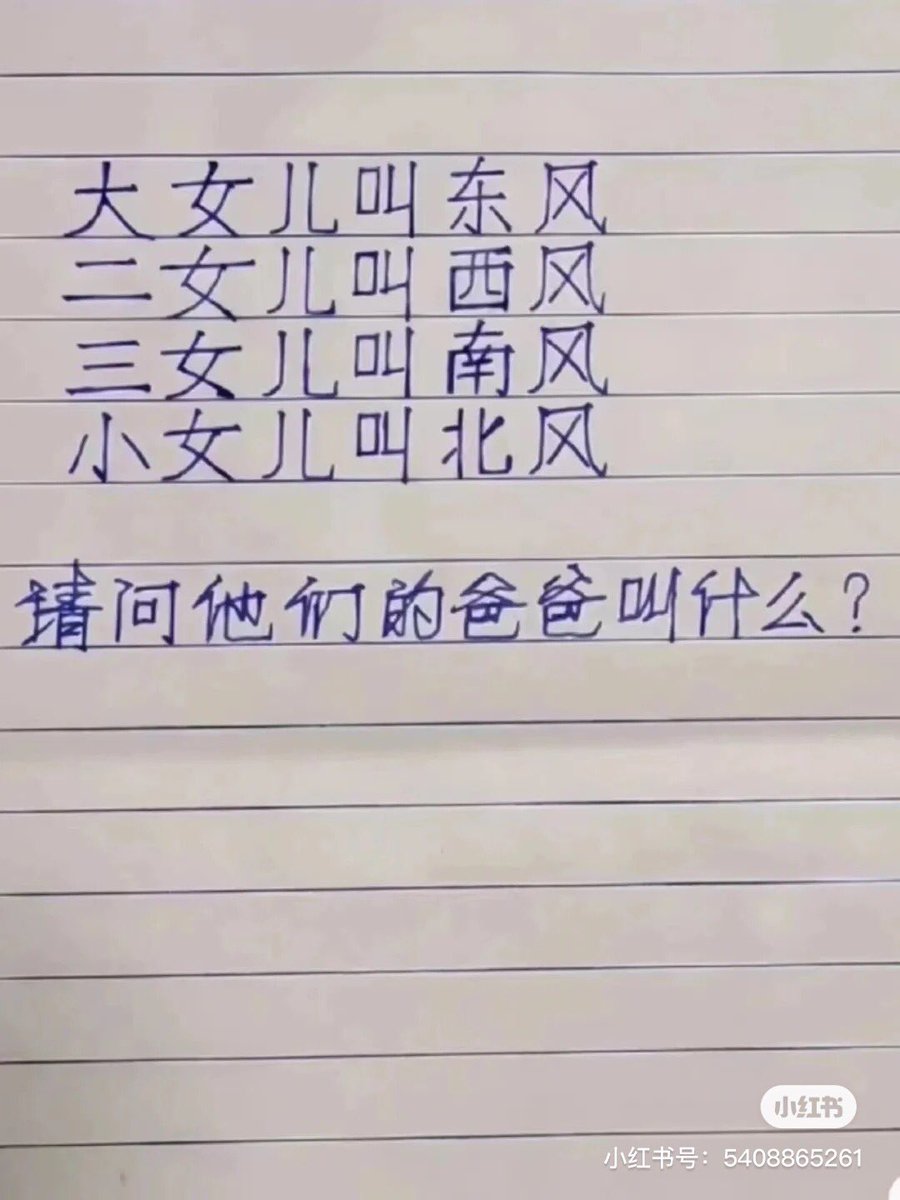 大女儿叫东风
二女儿叫西风
三女儿叫南风
小女儿叫北风
请问他们的爸爸叫什么?
小红书
小红书号：5408865261